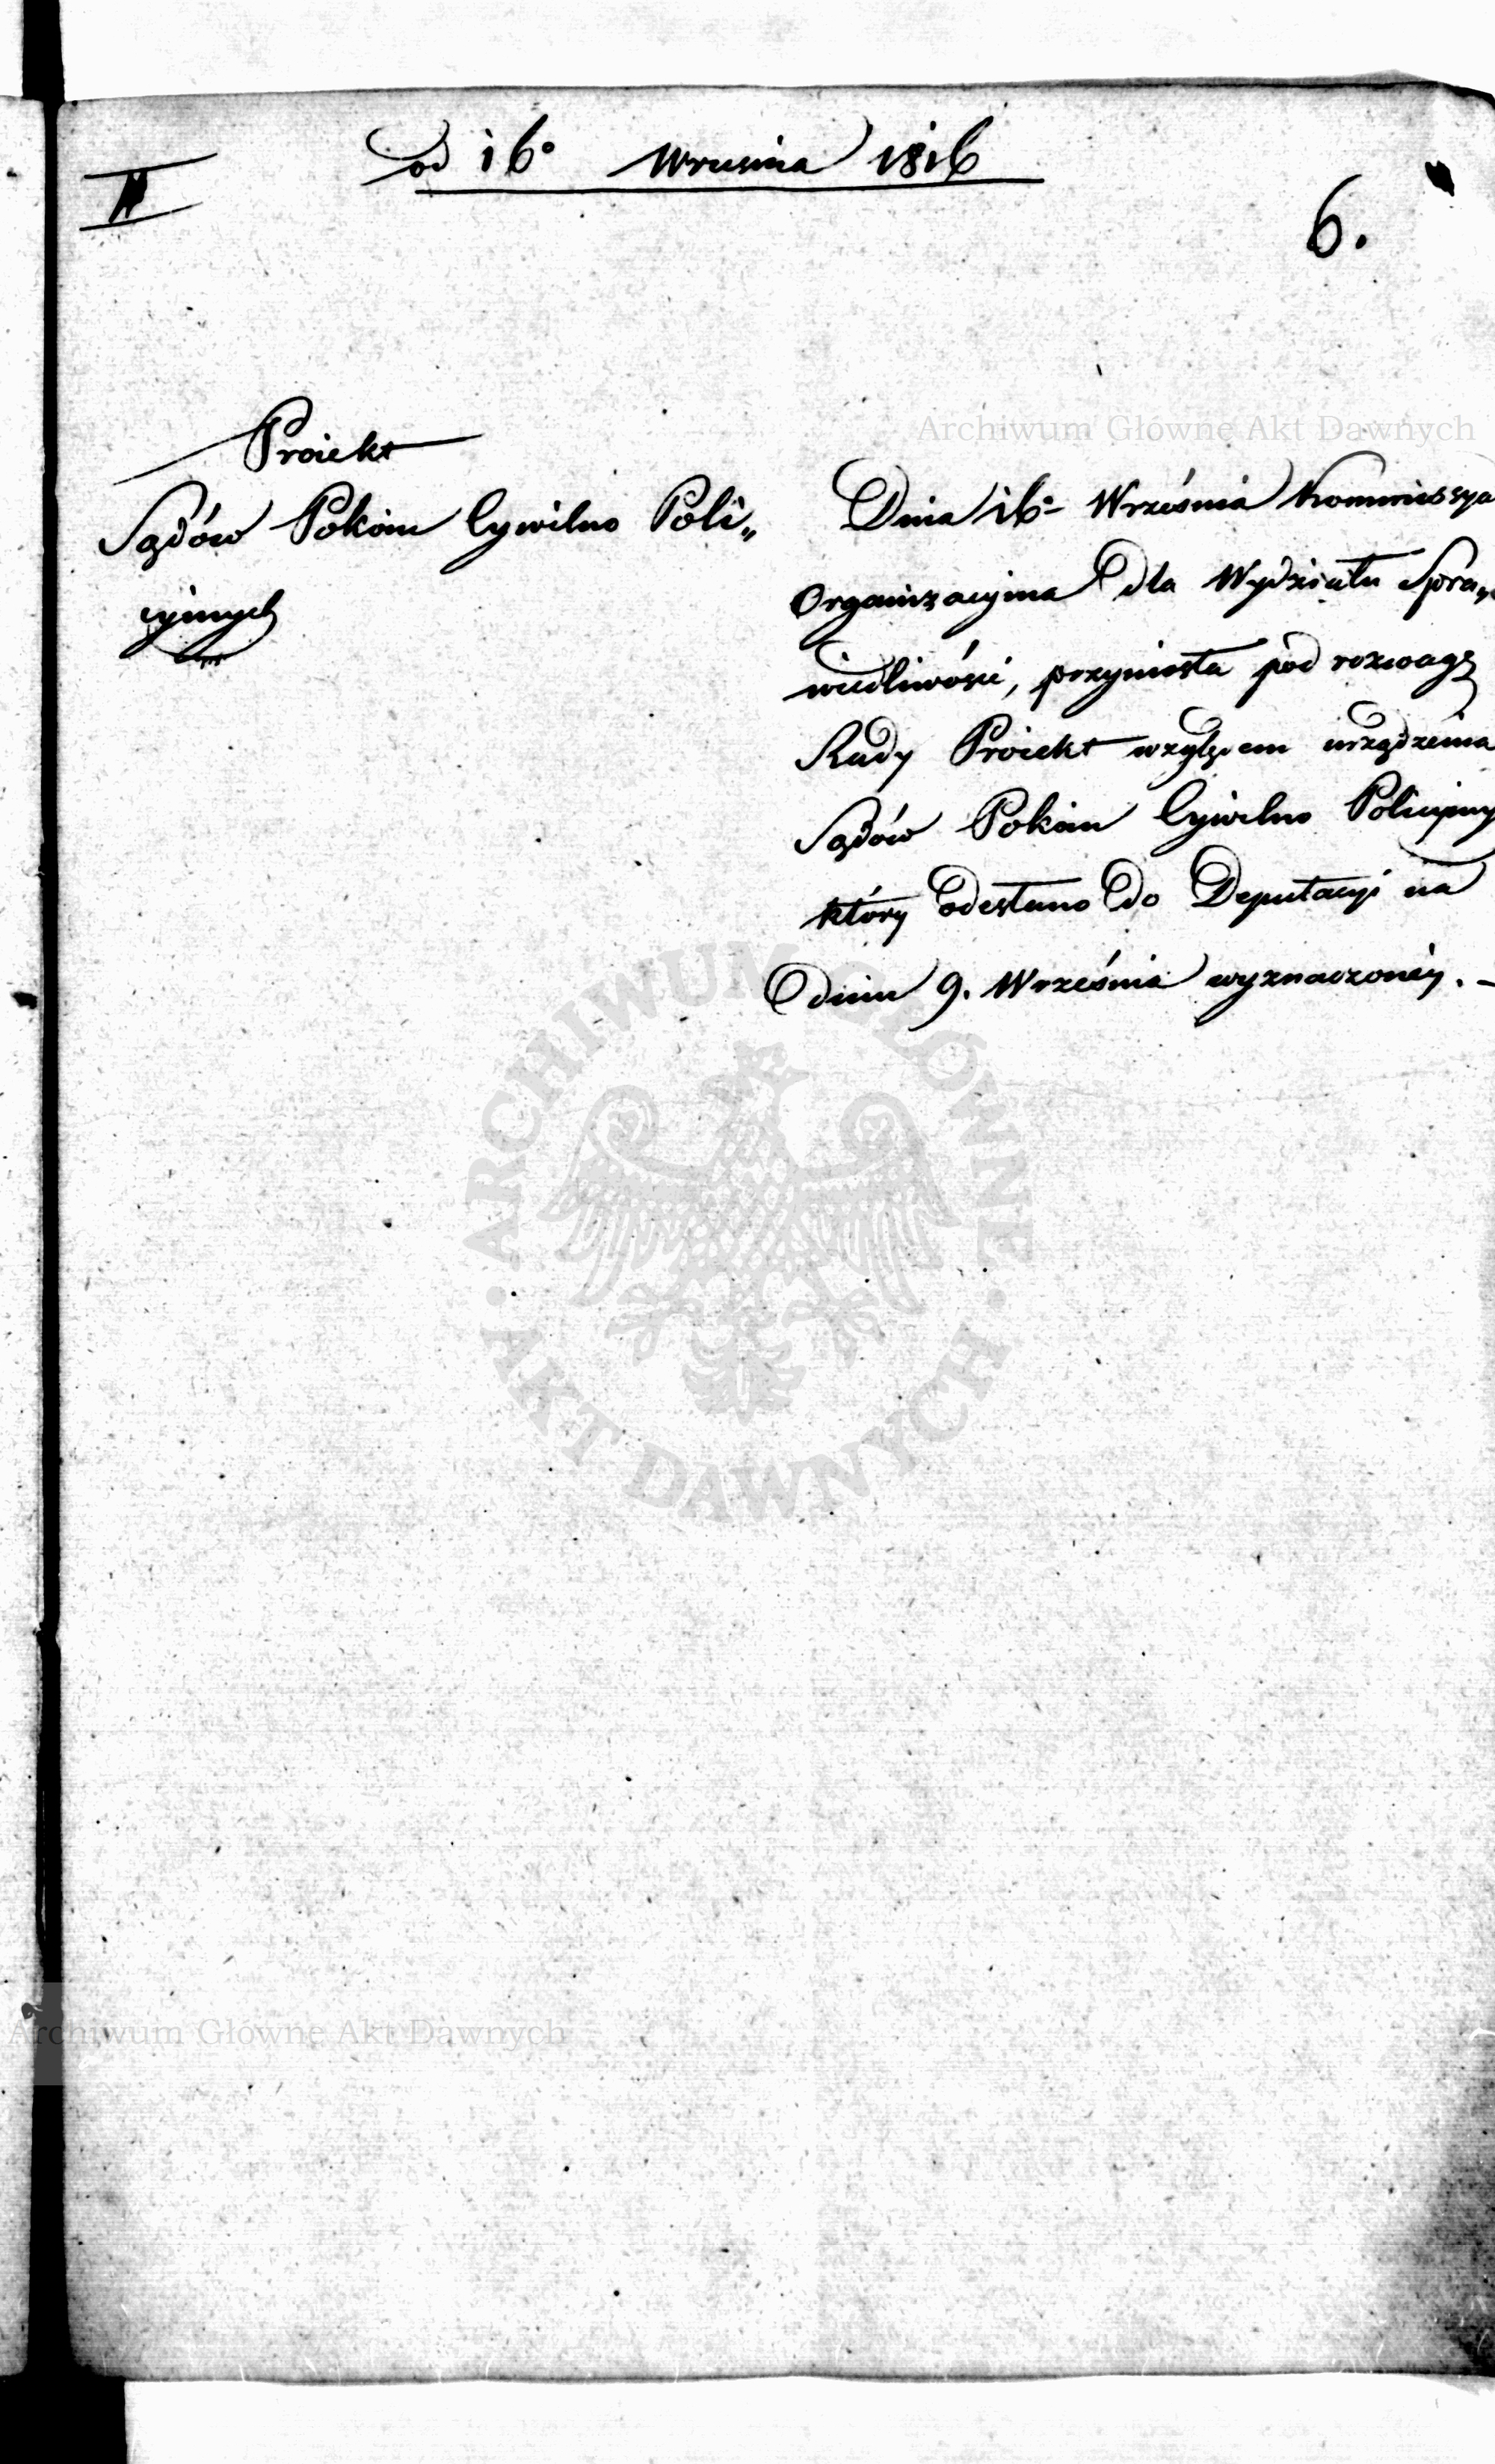 od 16° Wrzesnia 1816
II
6.
Proiekt
Sądów Pokoiu Cywilno Poli„
cyinych
Dnia 16° Września Kommissya
Organizacyina dla Wydziału Spra„
wiedliwości, przyniosła pod rozwagę
Rady Proiekt względem urządzenia
Sądów Pokoiu Cywilno Policyiny
który odesłano do Deputacyi na
dniu 9. Września wyznaczonéy. –
Archiwum Główne Akt Dawnych
ARCHIWUM GŁÓWNE
AKT DAWNYCH
Archiwum Główne Akt Dawnych